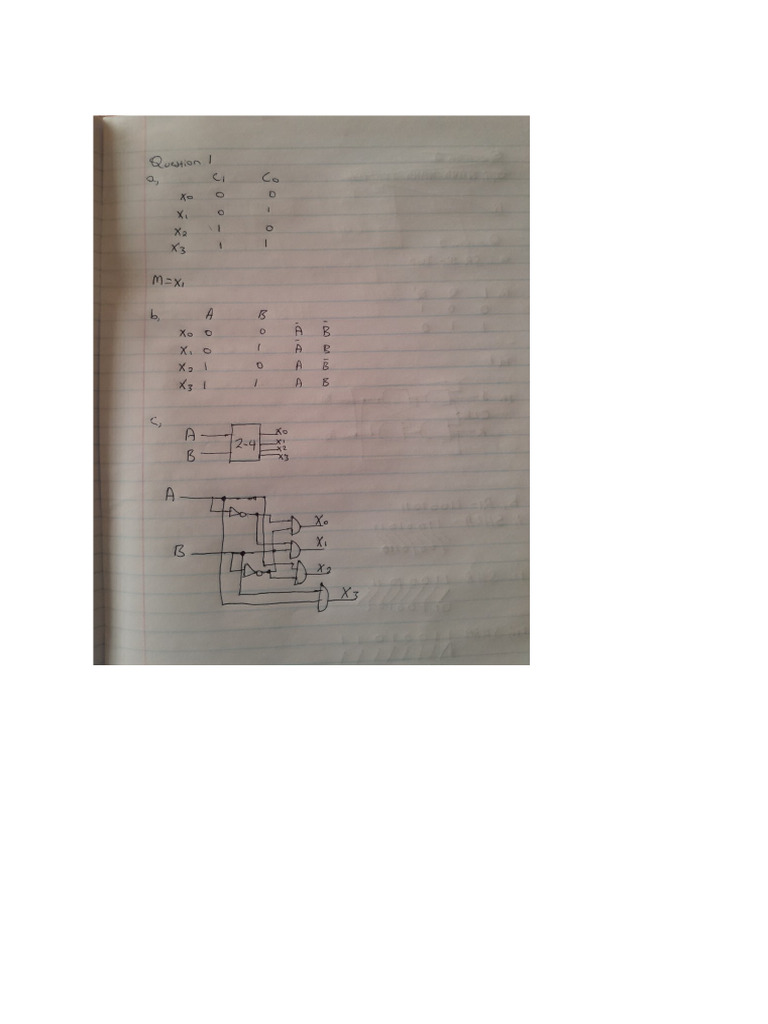 Question 1
a, C1 C0
X0 0 0
X1 0 1
X2 1 0
X3 1 1
M=X1
b, A B
X0 0 0 Ā B̄
X1 0 1 Ā B
X2 1 0 A B̄
X3 1 1 A B
c,
A 2-4 X0
X1
B X2
X3
A
X0
X1
B
X2
X3